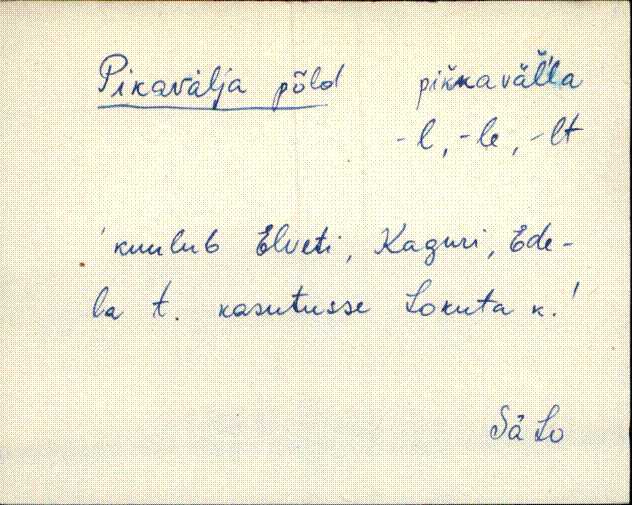 Pikavälja põld pikkaväl'l'a
-l, -le, -lt
'kuulub Elveti, Kaguri, Ede-
la t. kasutusse Lokuta k.'
Sä Lo